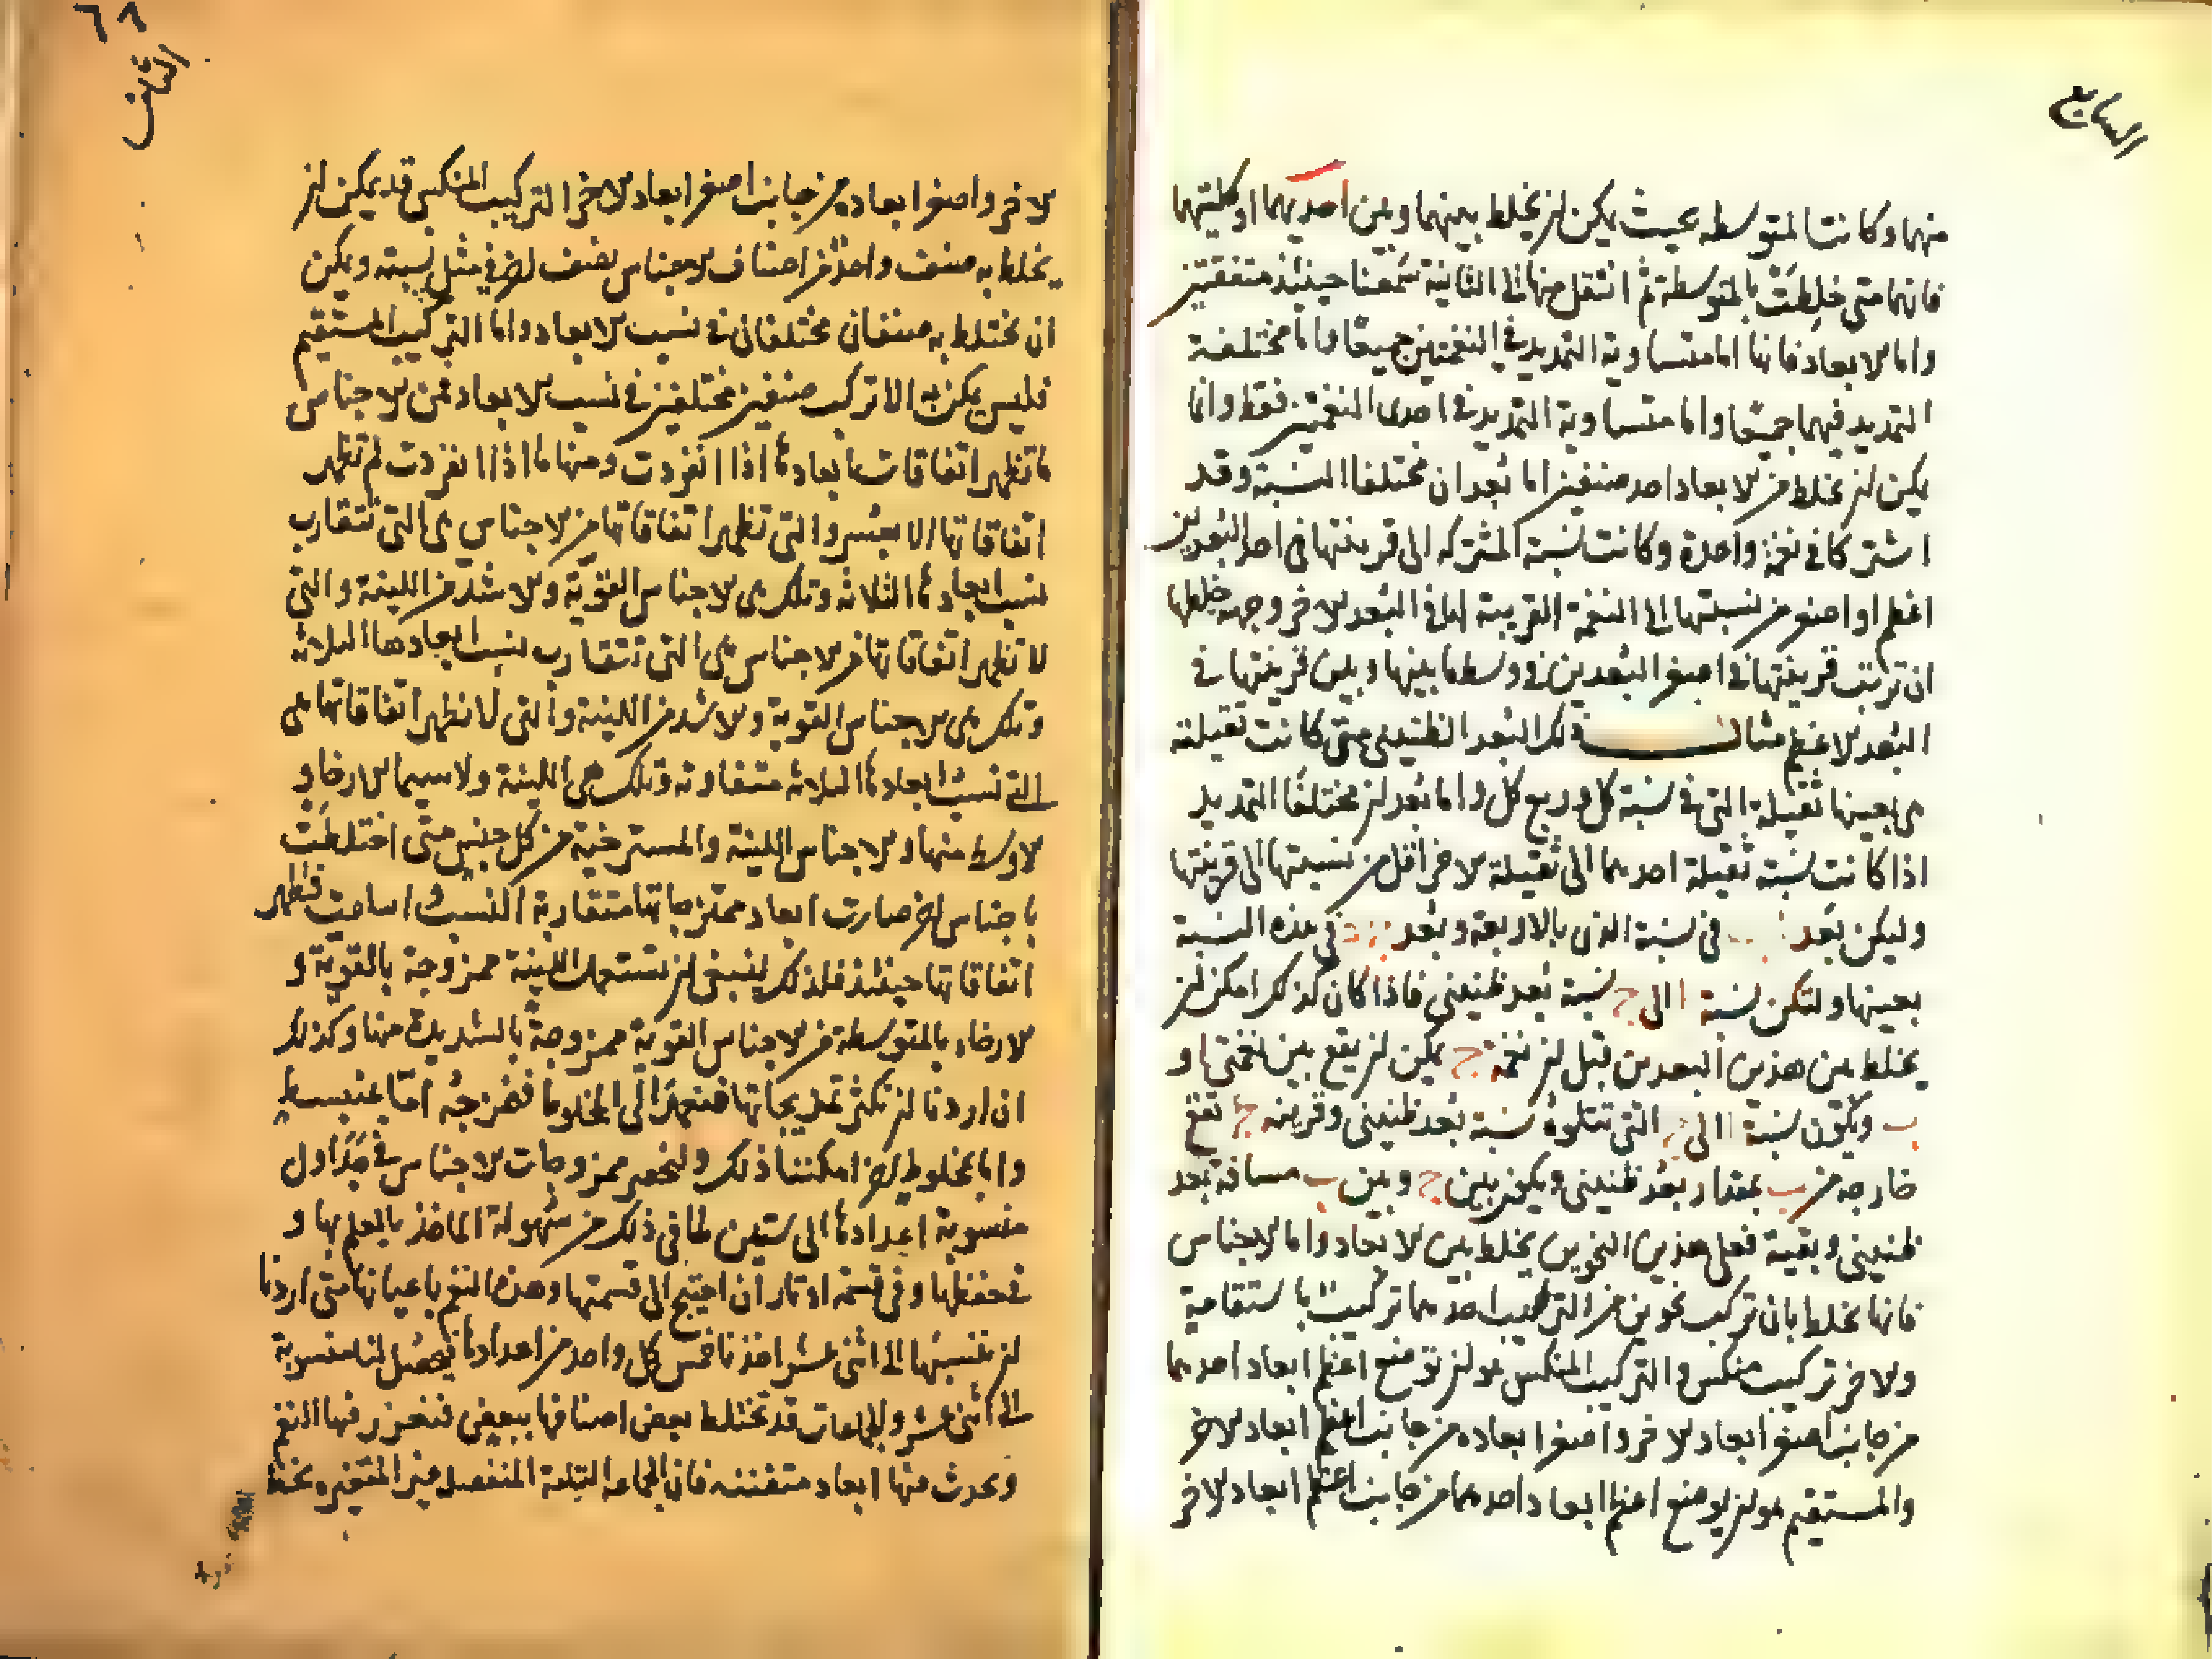 السابع
منهما وكانت المتوسطه بحيث يمكن ان يخلط بينهما وبين احديهما او كليتهما
فانهما متى خلطت بالمتوسطة ثم انتقل منها الى الثانية سمعنا حينئذ متفقتين
واما الابعاد فانها اما متساوية التمديد في النغمتين جميعًا واما مختلفة
التمديد فيهما جميعًا واما متساوية التمديد في احدى النغمتين فقط وانما
يمكن ان يخلط من الابعاد احد صنفين اما بُعدان مختلفا النسبة وقد
اشتركا في نغمة واحدة وكانت نسبة المشتركه الى قرينتها في احد البُعدين
اعظم او اصغر من نسبتها الى النغمة القريبة لها في البُعد الاخر وجهة خلطها
ان ترتب قرينتها في اصغر البُعدين في وسط ما بينها وبين قرينتها في
البُعد الاعظم مثال ذلك البُعد الطنينى متى كانت ثقيلته
هى بعينها ثقيلة التى في نسبة كل وربع كل واما بُعدان مختلفا التمديد
اذا كانت نسبة ثقيلة احدهما الى ثقيلة الاخر اقل من نسبتها الى قرينتها
وليكن بُعد في نسبة الذى بالاربعة وبُعد في هذه النسبة
بعينها ولتكن نسبة ا الى ج نسبة بُعد طنينى فاذا كان كذلك امكن ان
يخلط بين هذين البعدين قبل ان نغمة ج يمكن ان يقع بين نغمتى ا و
ب ويكون نسبة ا الى ج التى تتلوه نسبة بُعد طنينى وقرينه ج تقع
خارجه من ب بمقدار بُعد طنينى ويكون بين ج وبين ب مسافة بُعد
طنينى وبقية فعلى هذين النحوين يخلط بين الابعاد واما الاجناس
فانها تخلط بان تركب نحوين من التركيب احدهما تركيب باستقامة
والاخر تركيب منكس والتركيب المنكس هو ان توضع اعظم ابعاد احدهما
من جانب اصغر ابعاد الاخر واصغر ابعاده من جانب اعظم ابعاد الاخر
والمستقيم هو ان يوضع اعظم ابعاد احدهما من جانب اعظم ابعاد الاخر
٦٨
الثامن
الاخر واصغر ابعاده من جانب اصغر ابعاد الاخر التركيب المنكس قد يمكن ان
يخلط به صنف واحد من اصناف الاجناس بصنف اخر في مثل نسبته ويمكن
ان يختلط به صنفان مختلفان في نسب الابعاد واما التركيب المستقيم
فليس يمكن به الا تركيب صنفين مختلفين في نسب الابعاد فمن الاجناس
ما تظهر اتفاقات ابعادها اذا انفردت ومنها ما اذا انفردت لم تظهر
اتفاقاتها الا بعسر والتى تظهر اتفاقاتها من الاجناس هى التى تتقارب
نسب ابعادها الثلاثه وتلك هى الاجناس القوية والاشد من اللينة والتى
لا تظهر اتفاقاتها من الاجناس هى التى تتقارب نسب ابعادها الثلاثة
وتلك هى الاجناس القوية والاشد من اللينة والتى لا تظهر اتفاقاتها هى
التى نسب ابعادها الثلاثه متفاوته وتلك هى اللينة ولا سيما الارخا و
الاوسط منها والاجناس اللينة والمسترخية من كل جنس متى اختلطت
باجناس اخر صارت ابعاد ممتزجاتها متقاربة النسب واسامت فتظهر
اتفاقاتها حينئذ فلذلك ينبغى ان تستعمل اللينة ممزوجة بالقوية و
الارخا بالمتوسطه من الاجناس القوية ممزوجةً بالشديدة منها وكذلك
ان اردنا ان نكثر تمزيجاتها الى المخلوط فنمزجه امّا بمنبسط
واما بمخلوط اخر امكننا ذلك ولنحصر ممزوجات الاجناس في جداول
منسوبة اعدادها الى ستين لما في ذلك من سُهولة الماخذ بالعلم بها و
في حفظها وفي قسمة اوتار ان احتيج الى قسمتها وهذه النغم باعيانها متى اردنا
ان ننسبها الى اثنى عشر اخذنا خمس كل واحد من اعدادها فيحصل لنا منسوبة
الى اثنى عشر والجماعات قد تختلط بعض اصنافها ببعض فتغزر فيها النغم
ويحدث منها ابعاد متفننه فان الجماعه التامة المنفصله غير المتغيره تخلط